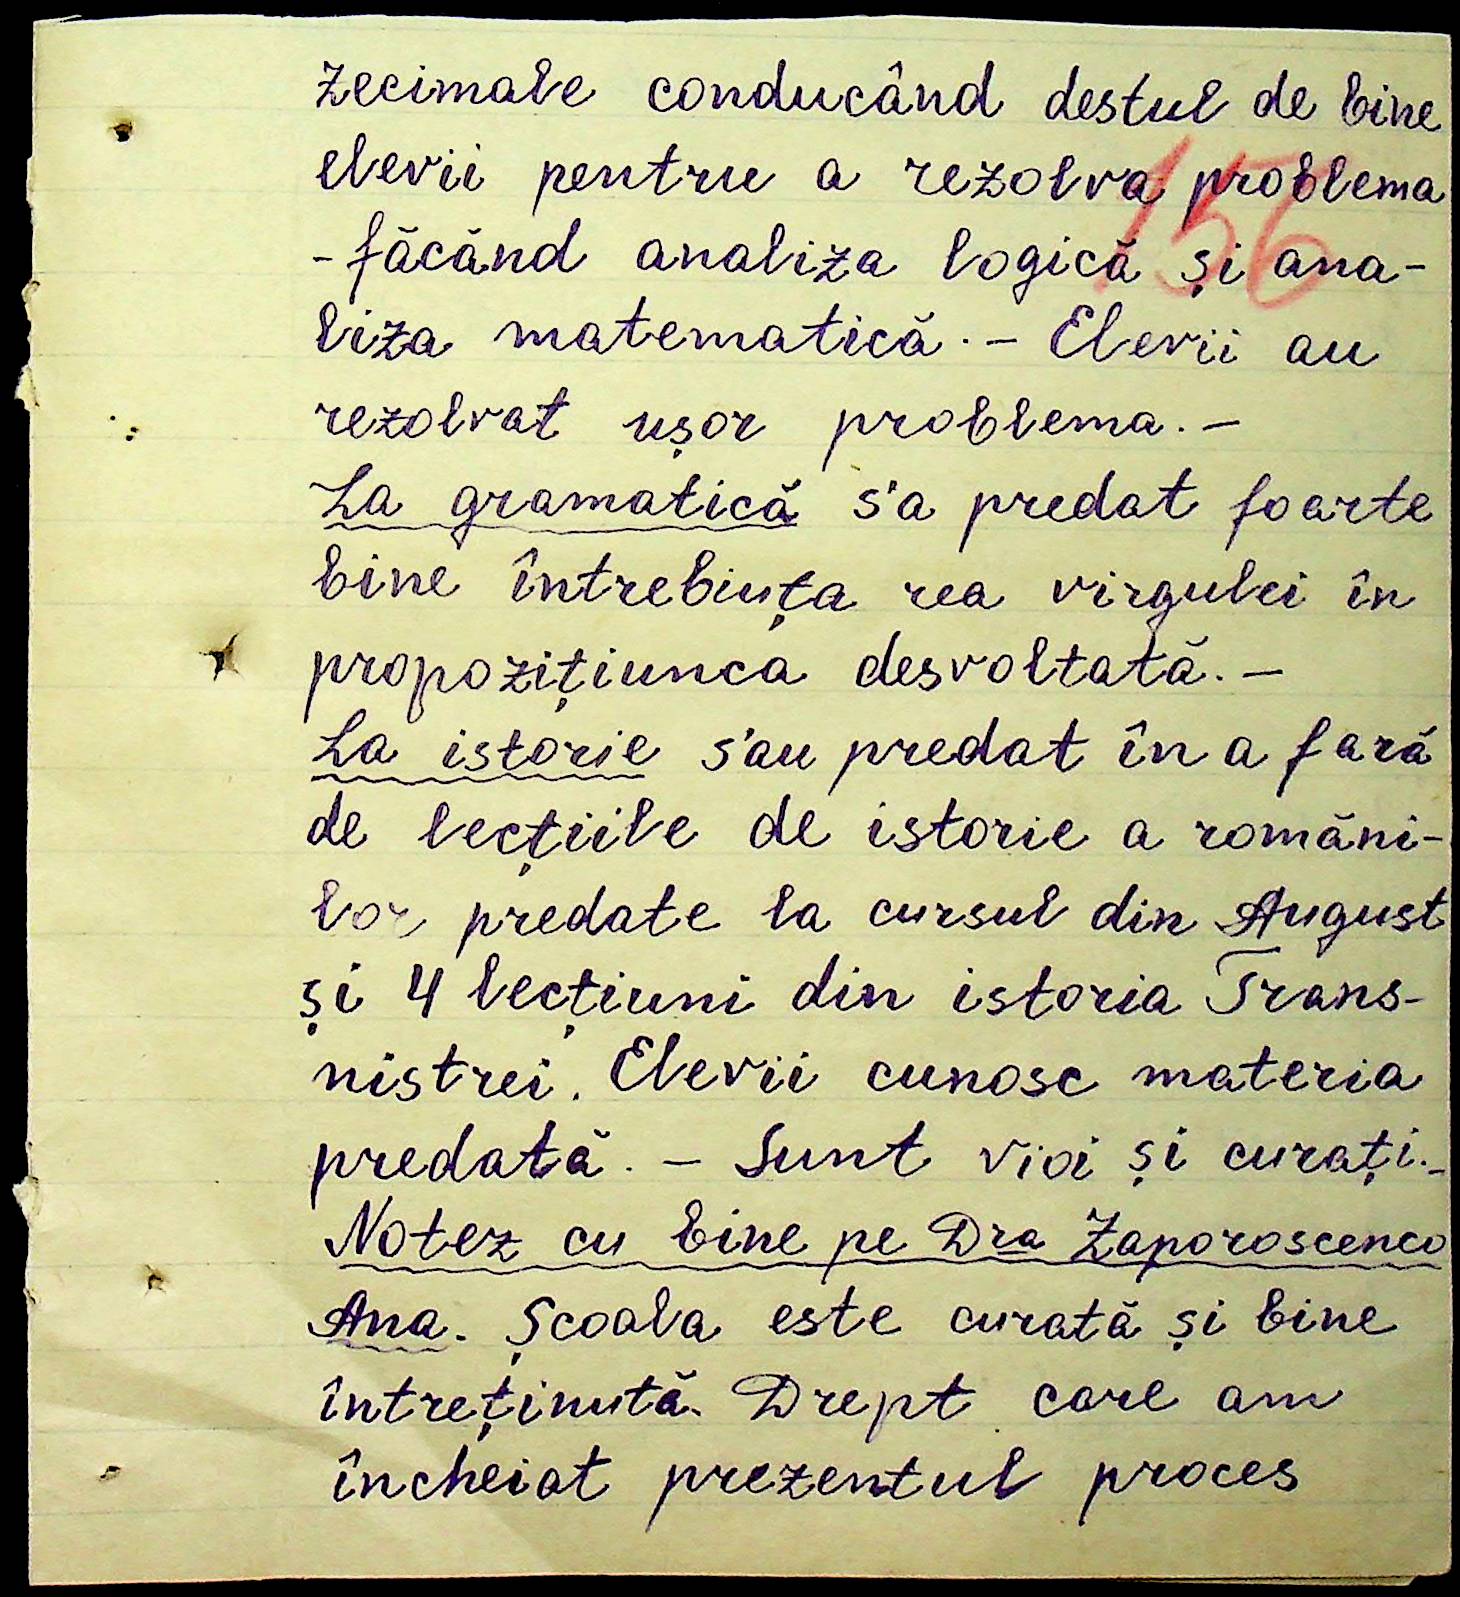 zecimale conducând destul de bine
elevii pentru a rezolva problema
156
- făcând analiza logică și ana-
liza matematică. - Elevii au
rezolvat ușor problema. -
La gramatică s'a predat foarte
bine întrebuința rea virgulei în
propozițiunea desvoltată. -
La istorie s'au predat în a fară
de lecțiile de istorie a români-
lor predate la cursul din August
și 4 lecțiuni din istoria Trans-
nistrei. Elevii cunosc materia
predată. - Sunt vioi și curați. -
Notez cu bine pe Dra Zaporoscenco
Ana. Școala este curată și bine
întreținută. Drept care am
încheiat prezentul proces